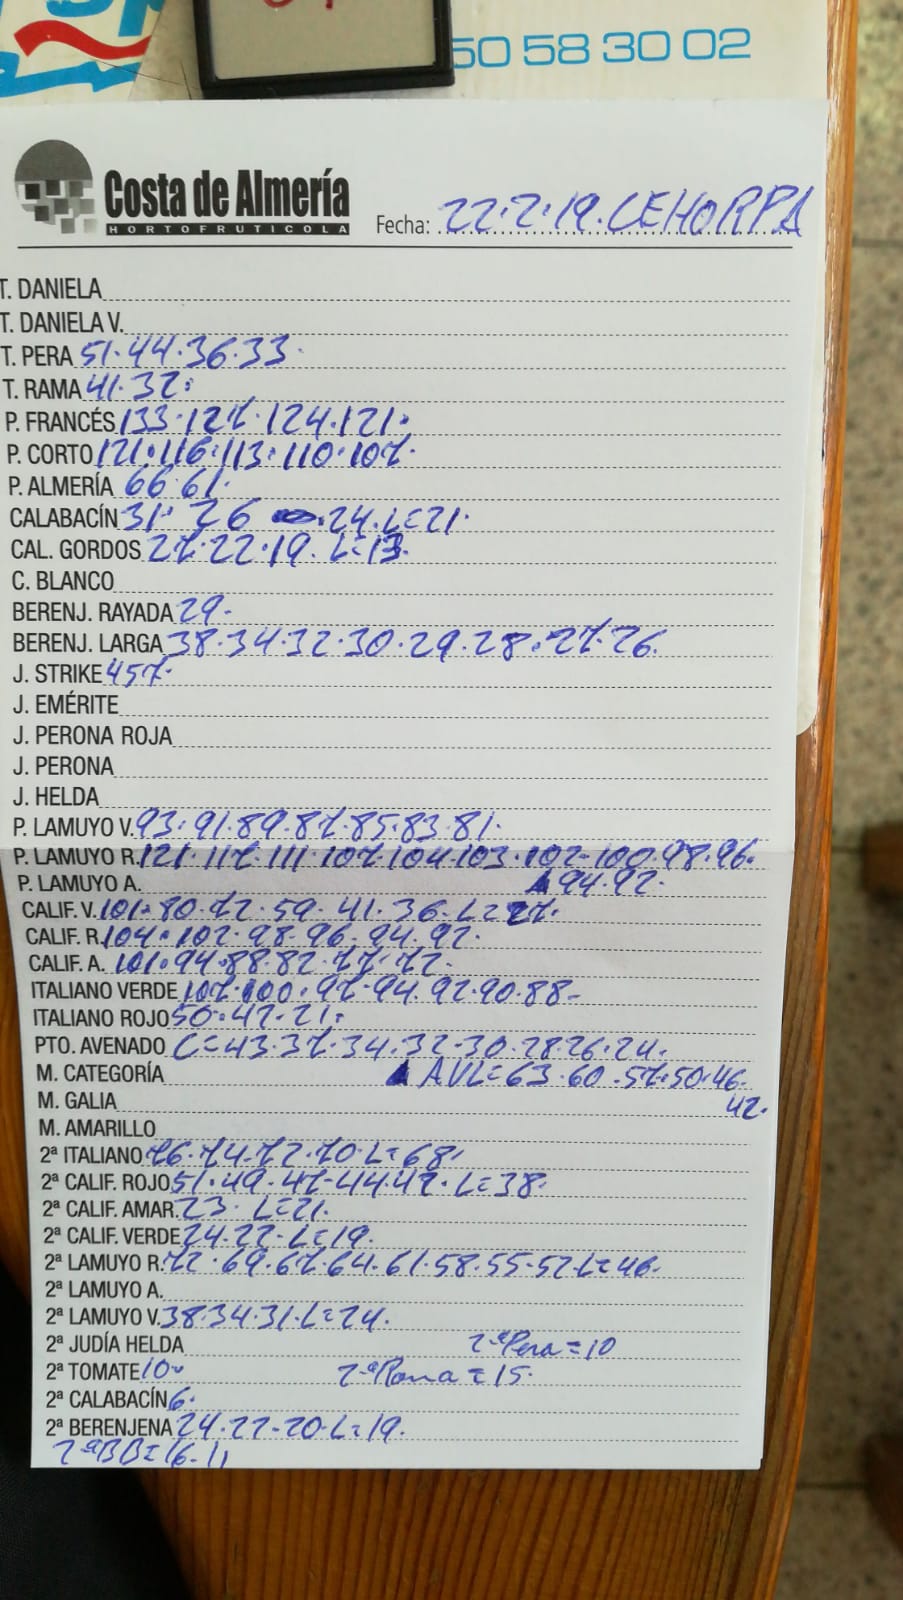 50 58 30 02
Costa de Almería
HORTOFRUTICOLA
Fecha: 22.2.19. CEHORPA
T. DANIELA
T. DANIELA V.
T. PERA 51.44.36.33.
T. RAMA 41.32.
P. FRANCÉS 133.127.124.121.
P. CORTO 121.116.113.110.107.
P. ALMERÍA 66.61.
CALABACÍN 31.26 .24.L=21.
CAL. GORDOS 27.22.19. L=13.
C. BLANCO
BERENJ. RAYADA 29.
BERENJ. LARGA 38.34.32.30.29.28.27.26.
J. STRIKE 457.
J. EMÉRITE
J. PERONA ROJA
J. PERONA
J. HELDA
P. LAMUYO V. 93.91.89.87.85.83.81.
P. LAMUYO R. 121.117.111.107.104.103.102.100.98.96.
P. LAMUYO A. 94.92.
CALIF. V. 101.80.72.59.41.36.L=27.
CALIF. R. 104.102.98.96.94.92.
CALIF. A. 101.94.88.82.77.72.
ITALIANO VERDE 107.100.97.94.92.90.88-
ITALIANO ROJO 50.42.21.
PTO. AVENADO C=43.37.34.32.30.28.26.24.
M. CATEGORÍA AVL=63.60.57.50.46.
M. GALIA 42.
M. AMARILLO
2ª ITALIANO 76.74.72.70.L=68.
2ª CALIF. ROJO 51.49.47.44.42. L=38.
2ª CALIF. AMAR. 23. L=21.
2ª CALIF. VERDE 24.22-L=19.
2ª LAMUYO R. 72.69.67.64.61.58.55.52.L=46.
2ª LAMUYO A.
2ª LAMUYO V. 38.34.31.L=24.
2ª JUDÍA HELDA 2ªPera=10
2ª TOMATE 10- 2ªRama=15.
2ª CALABACÍN 6.
2ª BERENJENA 24.22-20.L=19.
2ªBB=16-11